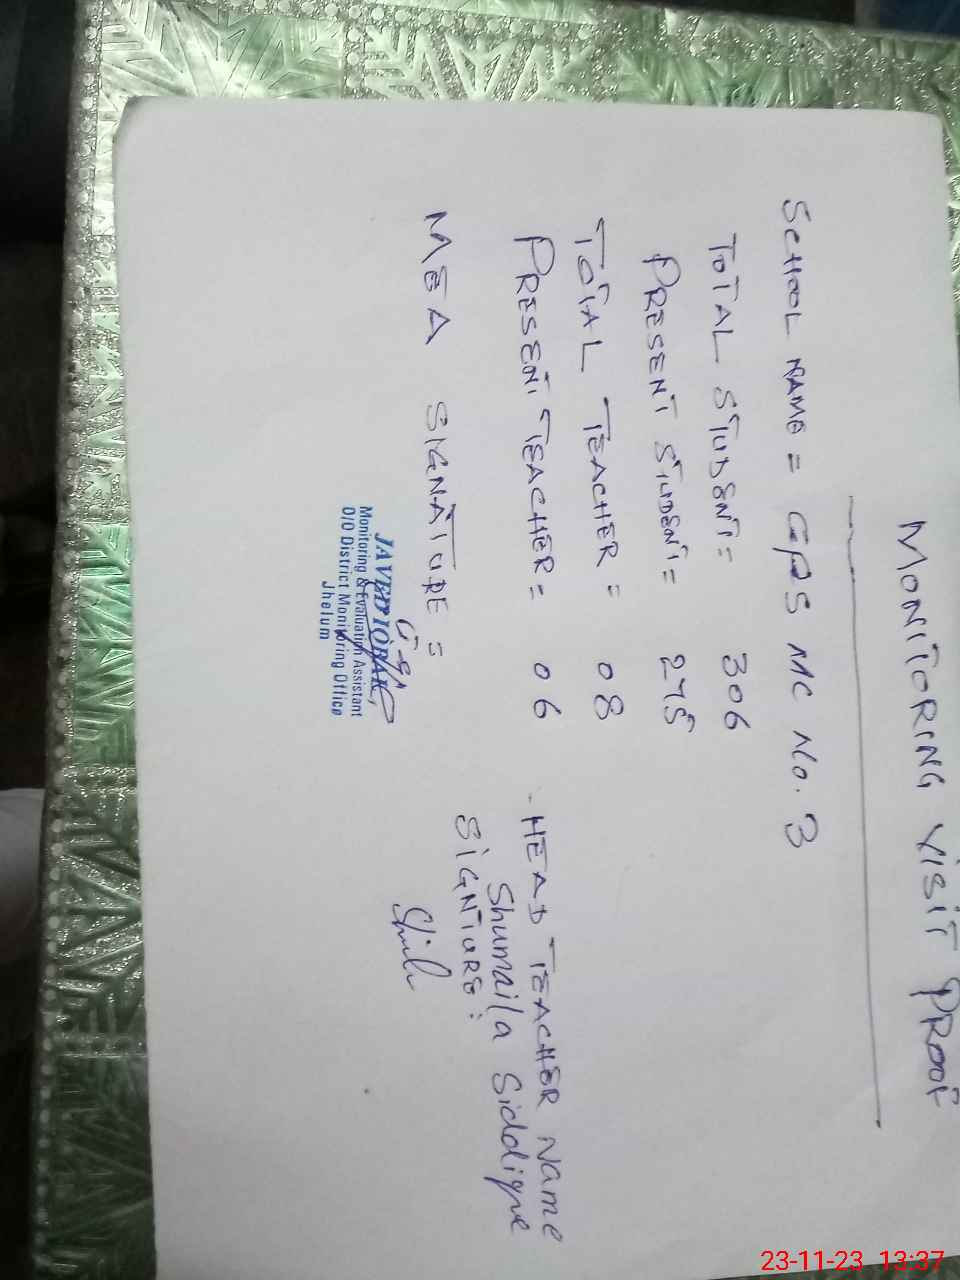 MONITORING VISIT PROOF
SCHOOL NAME = GPS MC No. 3
TOTAL STUDENT = 306
PRESENT STUDENT = 275
TOTAL TEACHER = 08
PRESENT TEACHER = 06
HEAD TEACHER NAME
Shumaila Siddique
SIGNTURE:
MEA SIGNATURE =
JAVED IQBAL
Monitoring & Evaluation Assistant
O/O District Monitoring Office
Jhelum
23-11-23 13:37